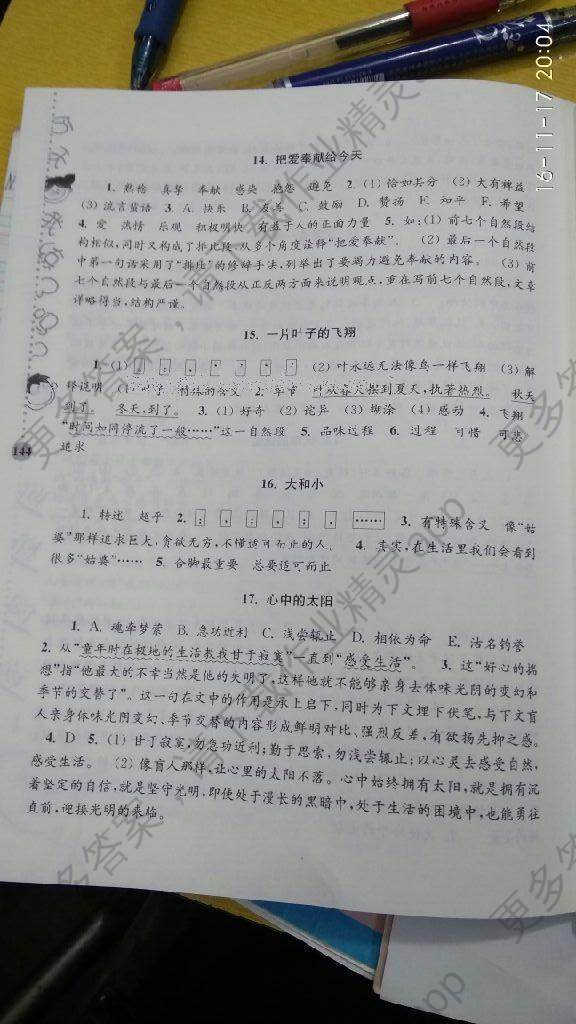 16-11-17 20:04
14. 把爱奉献给今天
1. 热枪 真挚 奉献 感染 抱怨 避免 2. (1) 恰如其分 (2) 大有裨益
(3) 流言蜚语 3. A. 快乐 B. 友善 C. 鼓励 D. 赞扬 E. 和平 F. 希望
4. 爱 热情 乐观 积极明快 有益于人的正面力量 5. 如：(1) 前七个自然段结
构相似，同时又构成了排比段，从多个角度诠释“把爱奉献”。 (2) 最后一个自然段
中第一句话采用了“排比”的修辞手法，列举出了要竭力避免奉献的内容。 (3) 前
七个自然段与最后一个自然段从正反两方面来说明观点，重在写前七个自然段，文章
详略得当，结构严谨。
15. 一片叶子的飞翔
1. (1) (2) 叶永远无法像鸟一样飞翔 (3) 解
释说明 (4) 叶子 特殊的含义 2. 春节 叶从春天摆到夏天，执著热烈。 秋天
到了。 冬天，到了。 3. (1) 好奇 (2) 诧异 (3) 糊涂 (4) 感动 4. 飞翔
“时间如同停流了一般……”这一自然段 5. 品味过程 6. 过程 可惜 可悲
追求
144
16. 大和小
1. 特述 超乎 2. ： ， ， ； ， …… 3. 有特殊含义 像“姑
婆”那样追求巨大，贪欲无穷，不懂适可而止的人、 4. 其实，在生活里我们会看到
很多“姑婆”…… 5. 合脚最重要 总要适可而止
17. 心中的太阳
1. A. 魂牵梦萦 B. 急功近利 C. 浅尝辄止 D. 相依为命 E. 沽名钓誉
2. 从“童年时在极地的生活教我甘于寂寞”一直到“感受生活”。 3. 这“好心的揣
想”指“他最大的不幸当然是他的失明了，这样他就不能够亲身去体味光阴的变幻和
季节的交替了”。这一句在文中的作用是承上启下，同时为下文埋下伏笔，与下文盲
人亲身体味光阴变幻、季节交替的内容形成鲜明对比、强烈反差，有欲扬先抑之感。
4. D 5. (1) 甘丁寂寞，勿急功近利；勤于思索，勿浅尝辄止；以心灵去感受自然，
感受生活。 (2) 像盲人那样，让心里的太阳不落。心中始终拥有太阳，就是拥有沉
着坚定的自信，就是坚守光明，即使处于漫长的黑暗中，处于生活的困境中，也能勇往
直前，迎接光明的来临。
更多答案，请下载作业精灵app